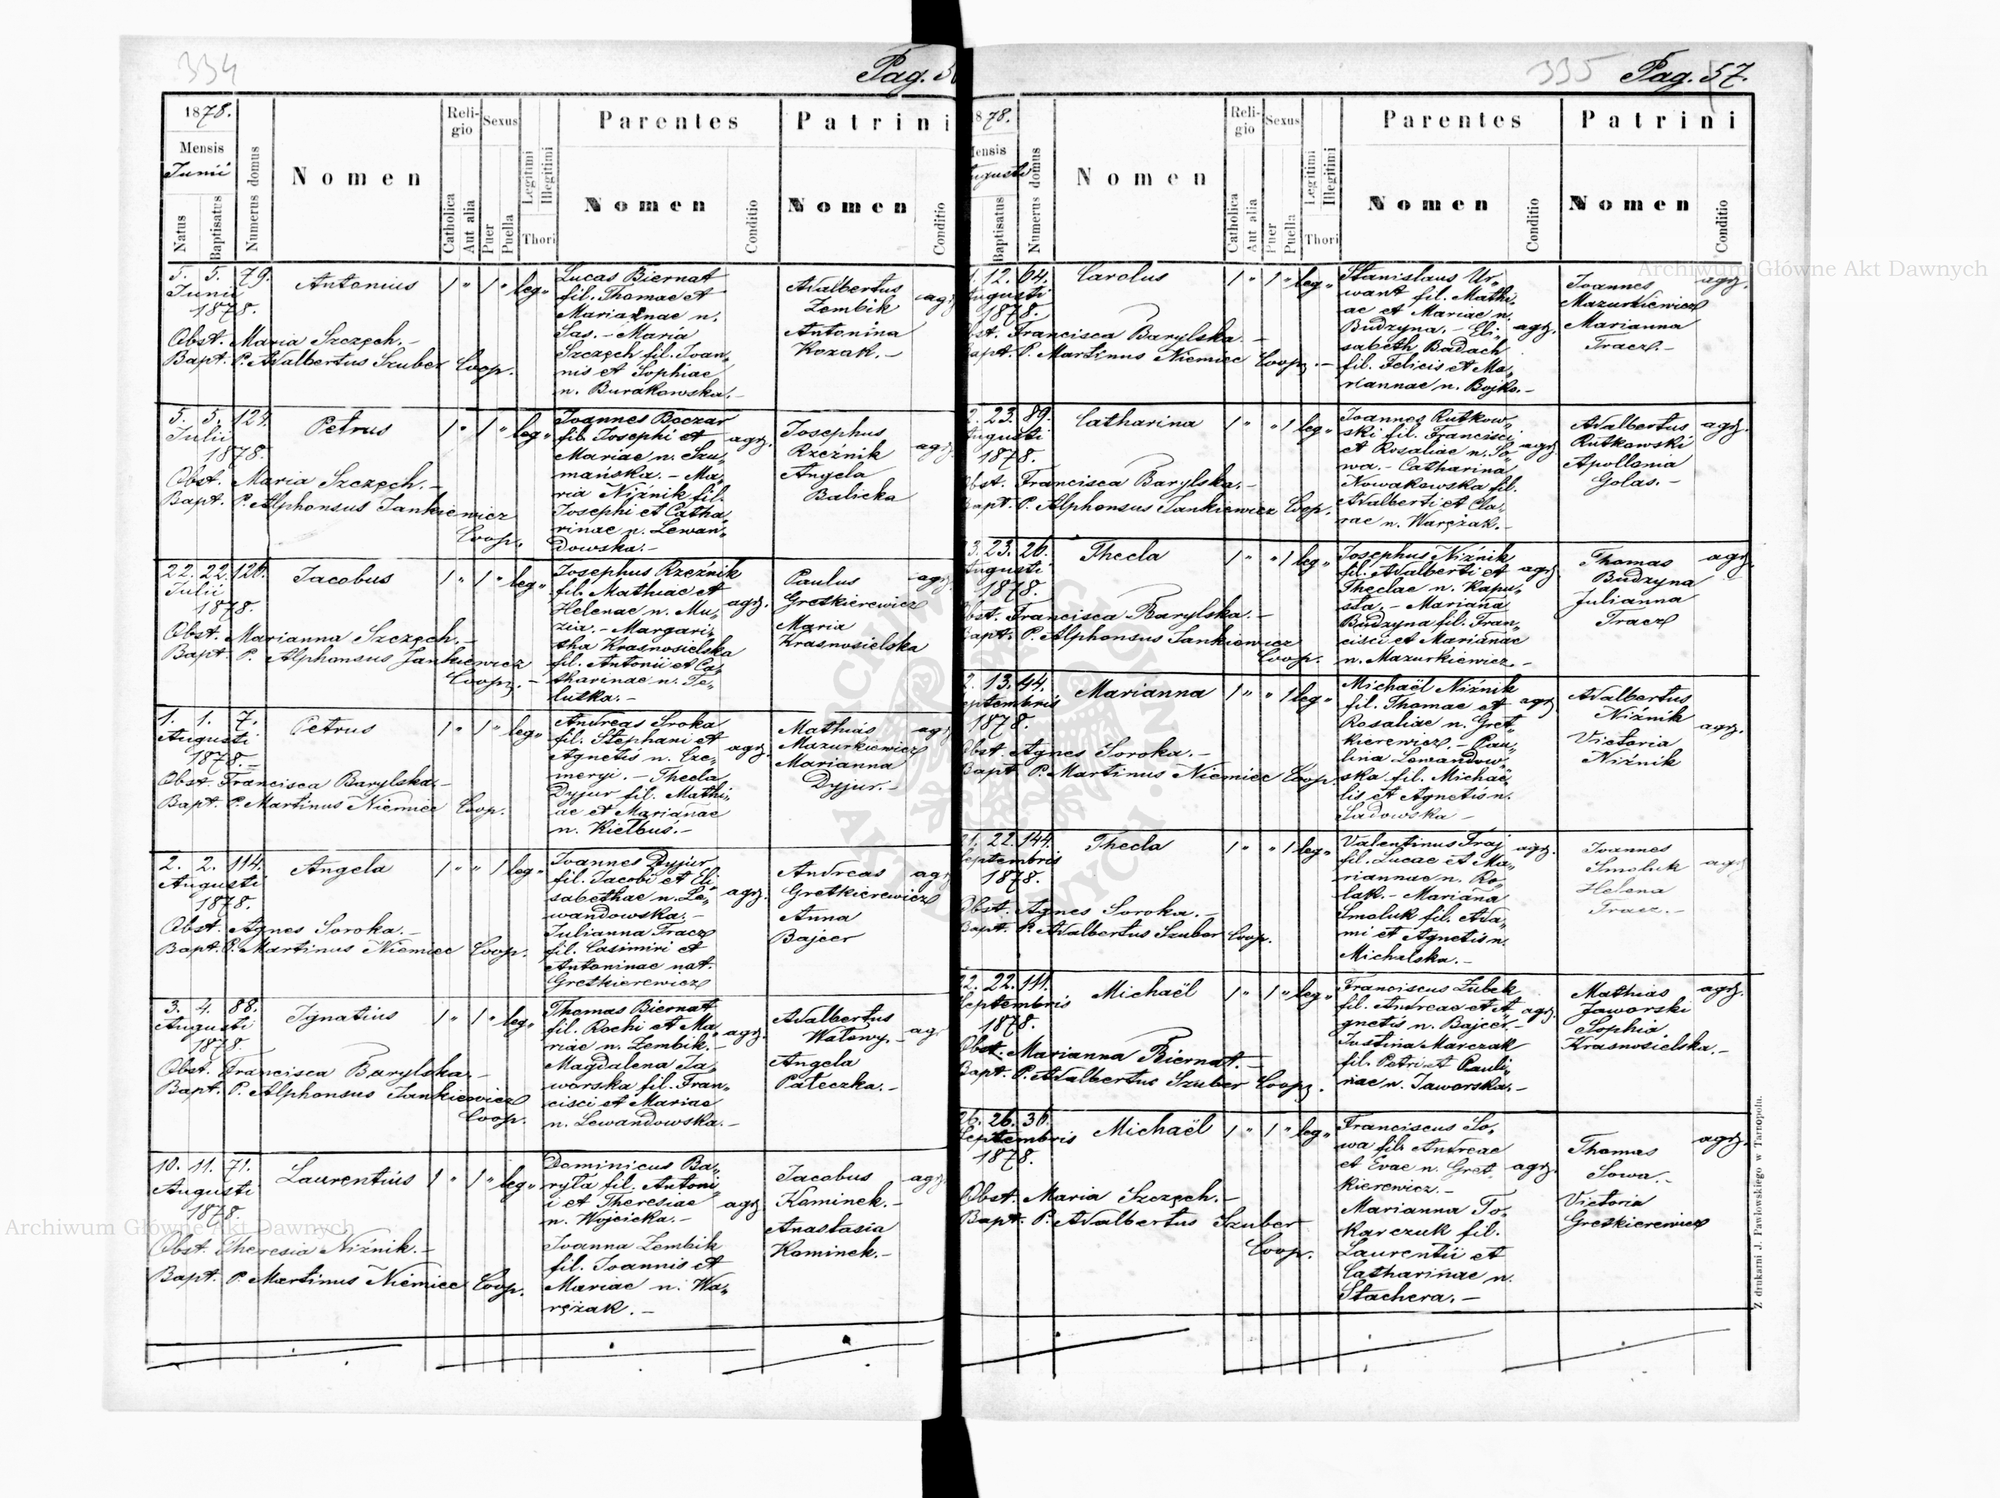 334
Pag. 5
1878.
Mensis
Junii
Natus
Baptisatus
Numerus domus
Nomen
Religio
Catholica
Aut alia
Sexus
Puer
Puella
Legitimi
Illegitimi
Thori
Parentes
Nomen
Conditio
Patrini
Nomen
Conditio
5. 5. 79. Antonius 1 " 1 " leg"
Junii
1878.
Obst. Maria Szczęch.-
Bapt. P. Adalbertus Szuber Coop.
Lucas Biernat
fil. Thomae et
Mariannae n.
Sas. - Maria
Szczęch fil. Joan-
nis et Sophiae
n. Burakowska.-
Adalbertus
Zembik
Antonina
Kozak.-
agr.
5. 5. 124. Petrus 1 " 1 " leg"
Julii
1878.
Obst. Maria Szczęch.-
Bapt. P. Alphonsus Jankiewicz
Coop.
Joannes Boczar
fil. Josephi et
Mariae n. Szu-
mańska. - Ma-
ria Niźnik fil.
Josephi et Catha-
rinae n. Lewan-
dowska.-
agr.
Josephus
Rzeźnik
Angela
Balicka
agr.
22. 22. 126. Jacobus 1 " 1 " leg"
Julii
1878.
Obst. Marianna Szczęch.-
Bapt. P. Alphonsus Jankiewicz
Coop. -
Josephus Rzeźnik
fil. Mathiae et
Helenae n. Mu-
zia. - Margari-
tha Krasnosielska
fil. Antonii et Ca-
tharinae n. Te-
lutka.-
agr.
Paulus
Gretkierewicz
Maria
Krasnosielska
agr.
1. 1. 7. Petrus 1 " 1 " leg"
Augusti
1878.-
Obst. Francisca Barylska.-
Bapt. P. Martinus Niemiec Coop.
Andreas Sroka
fil. Stephani et
Agnetis n. Cze-
meryi. - Thecla
Dyjur fil. Mathi-
ae et Mariannae
n. Kiełbus.-
agr.
Mathias
Mazurkiewicz
Marianna
Dyjur.-
agr.
2. 2. 114. Angela 1 " " 1 leg"
Augusti
1878.
Obst. Agnes Soroka.-
Bapt. P. Martinus Niemiec Coop.
Joannes Dyjur
fil. Jacobi et Eli-
sabethae n. Le-
wandowska.-
Julianna Tracz
fil. Casimiri et
Antoninae nat.
Gretkierewicz
agr.
Andreas
Gretkierewicz
Anna
Bajcer
agr.
3. 4. 88. Ignatius 1 " 1 " leg"
Augusti
1878.
Obst. Francisca Barylska.-
Bapt. P. Alphonsus Jankiewicz
Coop.
Thomas Biernat
fil. Rochi et Ma-
riae n. Zembik.-
Magdalena Ja-
worska fil. Fran-
cisci et Mariae
n. Lewandowska.-
agr.
Adalbertus
Watowy.-
Angela
Pateczka.-
ag
10. 11. 71. Laurentius 1 " 1 " leg"
Augusti
1878.
Obst. Theresia Niźnik.-
Bapt. P. Martinus Niemiec Coop.
Dominicus Ba-
ryła fil. Antoni
i et Theresiae
n. Wojcicka.-
Joanna Zembik
fil. Joannis et
Mariae n. Wa-
rężak.-
agr.
Jacobus
Kominek.-
Anastasia
Kominek.-
agr.
335
Pag. 57.
1878.
Mensis
Augusti
Baptisatus
Numerus domus
Nomen
Religio
Catholica
Aut alia
Sexus
Puer
Puella
Legitimi
Illegitimi
Thori
Parentes
Nomen
Conditio
Patrini
Nomen
Conditio
12. 64. Carolus 1 " 1 " leg"
Augusti
1878.
Obst. Francisca Barylska.-
Bapt. P. Martinus Niemiec Coop. -
Stanislaus Ur-
want fil. Mathi-
ae et Mariae n.
Budzyna. - Eli-
sabeth Badach
fil. Felicis et Ma-
riannae n. Bojko.-
agr.
Joannes
Mazurkiewicz
Marianna
Tracz.-
agr.
23. 89. Catharina 1 " " 1 leg"
Augusti
1878.
Obst. Francisca Barylska.-
Bapt. P. Alphonsus Jankiewicz Coop.
Joannes Rutkow-
ski fil. Francisci
et Rosaliae n. So-
wa. - Catharina
Nowakowska fil.
Adalberti et Cla-
rae n. Warężak.-
agr.
Adalbertus
Rutkowski
Apollonia
Golas.-
agr.
23. 26. Thecla 1 " " 1 leg"
Augusti
1878.
Obst. Francisca Barylska.-
Bapt. P. Alphonsus Jankiewicz
Coop.
Josephus Niźnik
fil. Adalberti et
Theclae n. Kapu-
sta. - Marianna
Budzyna fil. Fran-
cisci et Mariannae
n. Mazurkiewicz.-
agr.
Thomas
Budzyna
Julianna
Tracz
agr.
13. 44. Marianna 1 " " 1 leg"
Septembris
1878.
Obst. Agnes Soroka.-
Bapt. P. Martinus Niemiec Coop.
Michaël Niźnik
fil. Thomae et
Rosaliae n. Gret-
kierewicz. - Pau-
lina Lewandow-
ska fil. Michaë-
lis et Agnetis n.
Sadowska -
agr.
Adalbertus
Niźnik
Victoria
Niźnik
agr.
21. 22. 144. Thecla 1 " " 1 leg"
Septembris
1878.
Obst. Agnes Soroka.-
Bapt. P. Adalbertus Szuber Coop.
Valentinus Fraj
fil. Lucae et Ma-
riannae n. Ro-
lak. - Marianna
Smoluk fil. Ada-
mi et Agnetis n.
Michalska.-
agr.
Joannes
Smoluk
Helena
Tracz.-
agr
22. 22. 111. Michaël 1 " 1 " leg"
Septembris
1878.
Obst. Marianna Biernat.-
Bapt. P. Adalbertus Szuber Coop.
Franciscus Zubek
fil. Andreae et A-
gnetis n. Bajcer.-
Justina Marczak
fil. Petri et Pauli-
nae n. Jaworska.-
agr.
Mathias
Jaworski
Sophia
Krasnosielska.-
agr.
26. 26. 36. Michaël 1 " 1 " leg"
Septembris
1878.
Obst. Maria Szczęch.-
Bapt. P. Adalbertus Szuber
Coop.
Franciscus So-
wa fil. Andreae
et Evae n. Gret-
kierewicz.-
Marianna To-
karczuk fil.
Laurentii et
Catharinae n.
Stachera.-
agr.
Thomas
Sowa.-
Victoria
Gretkierewicz
agr.
Z drukarni J. Pawłowskiego w Tarnopolu.
Archiwum Główne Akt Dawnych
Archiwum Główne Akt Dawnych